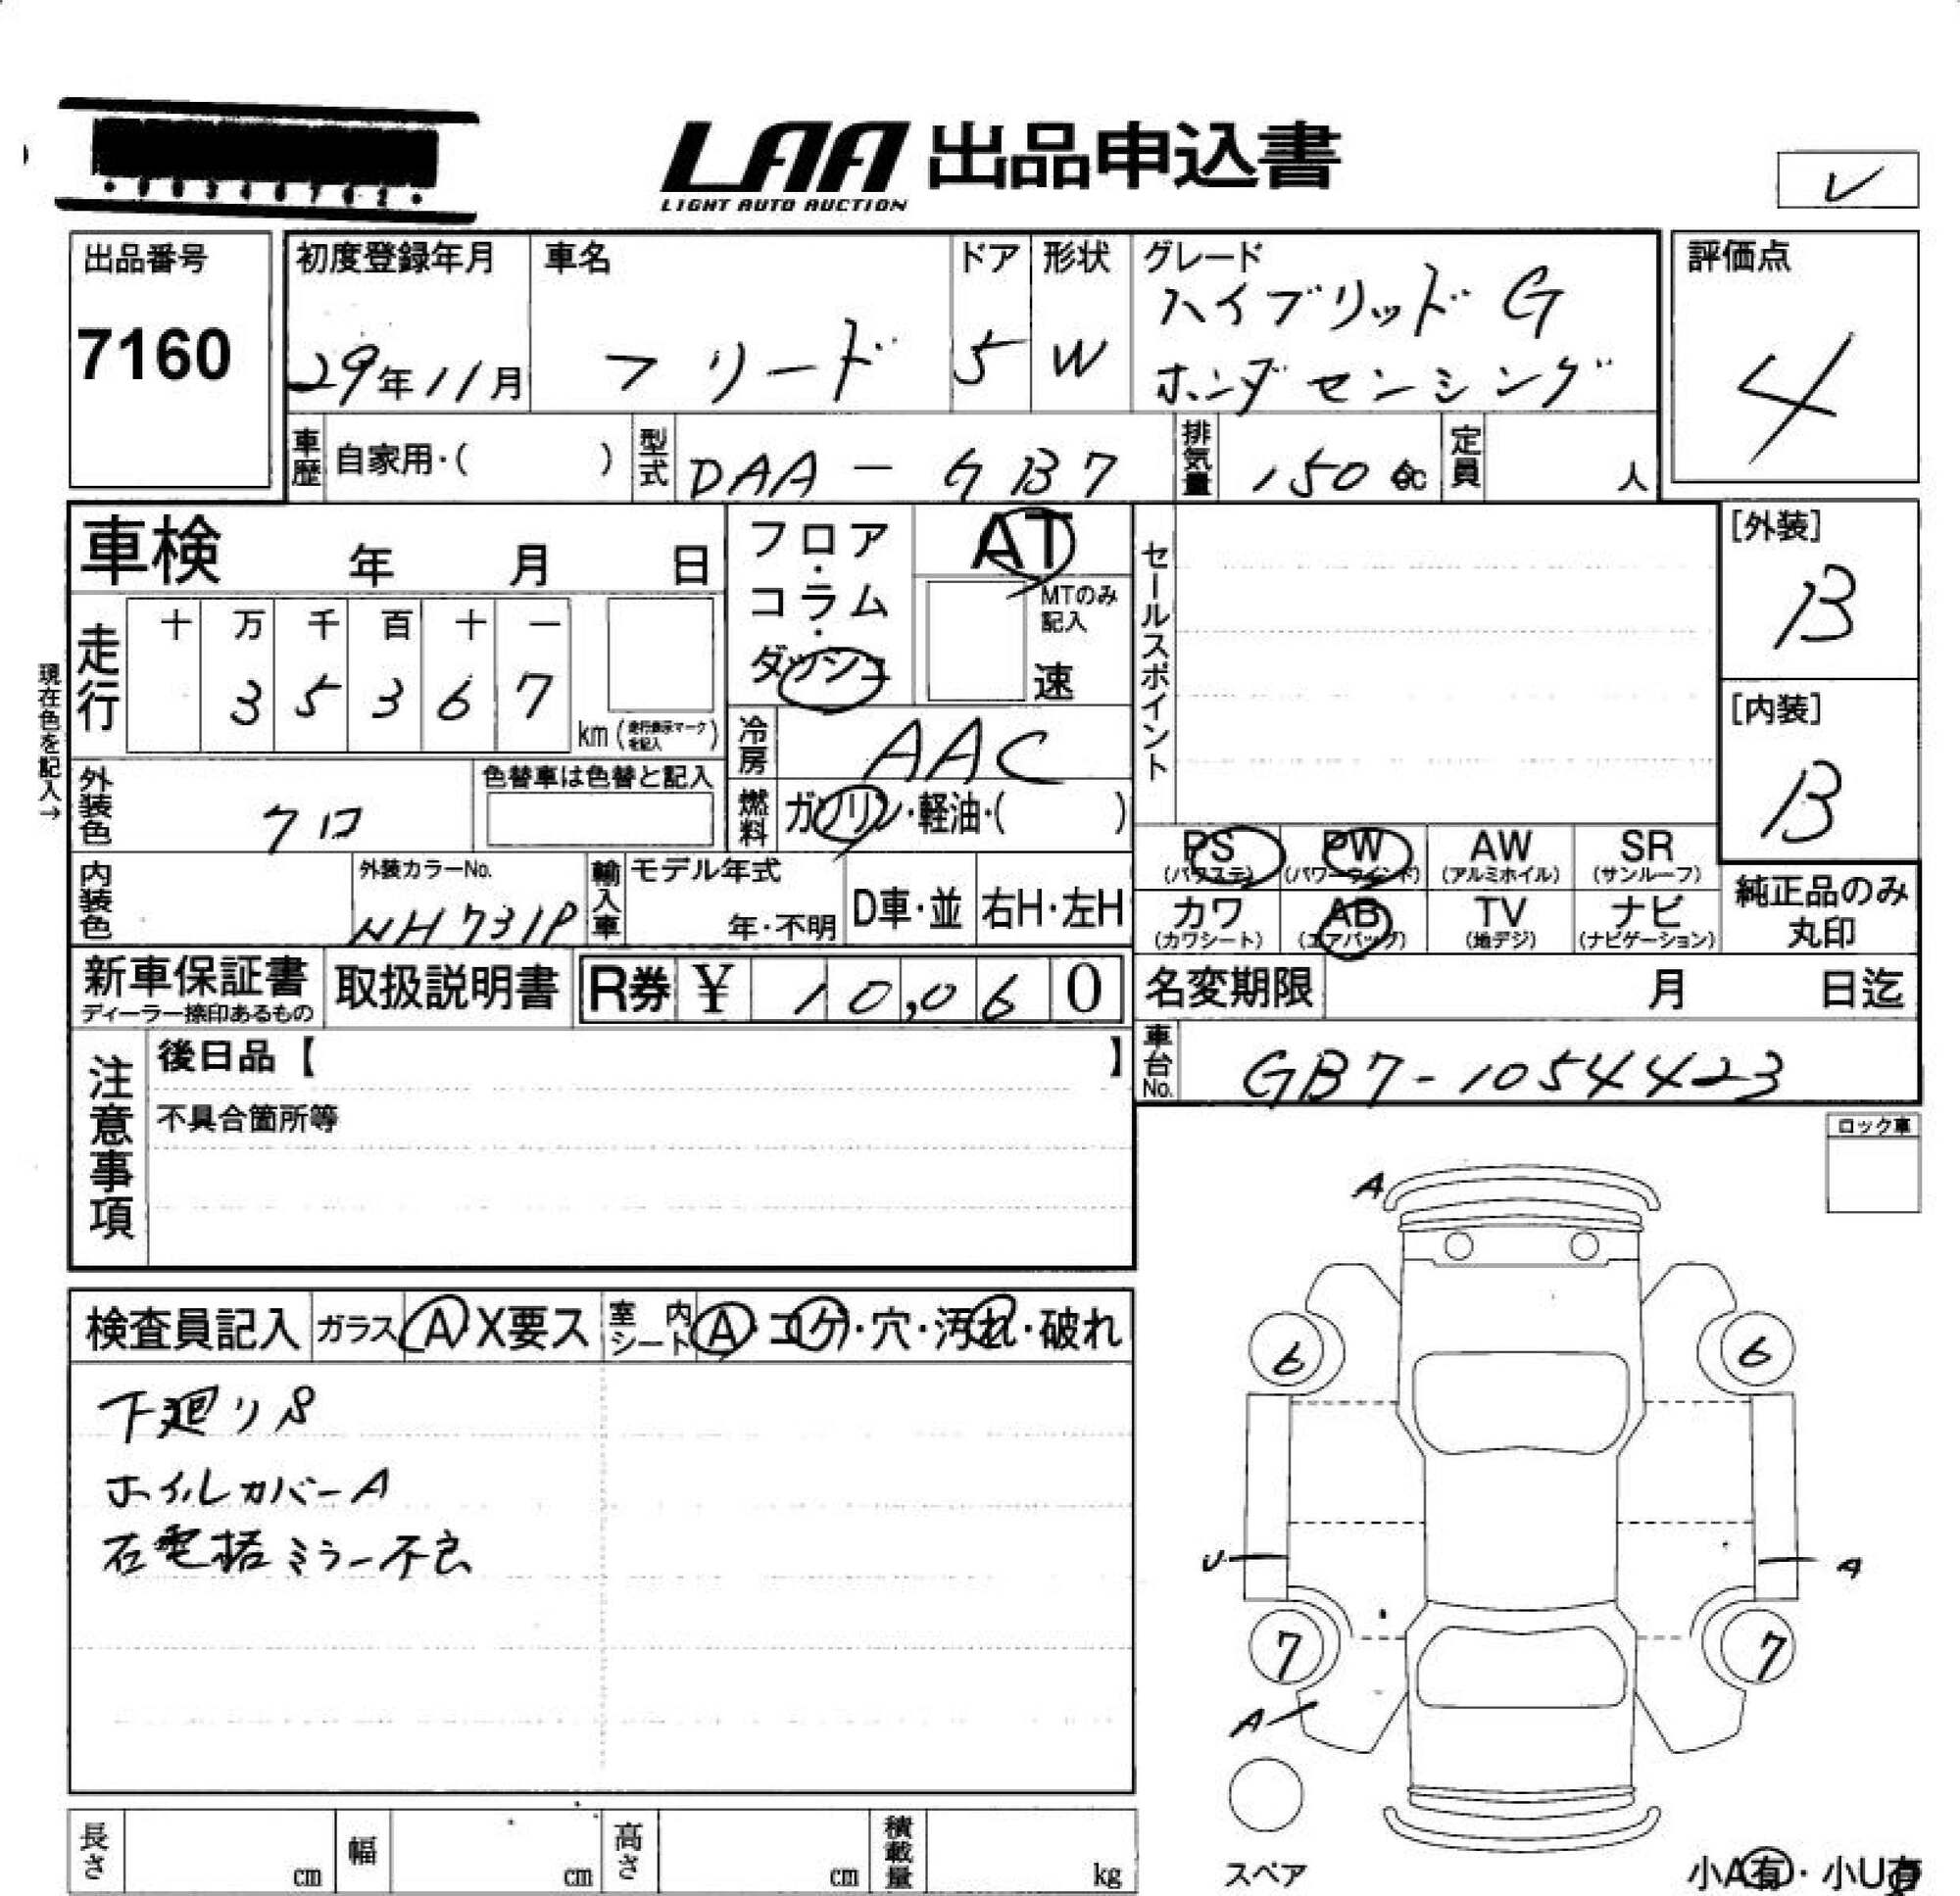 LAA 出品申込書
LIGHT AUTO AUCTION
レ
出品番号
7160
初度登録年月
29年11月
車名
フリード
ドア
5
形状
W
グレード
ハイブリッド G
ホンダセンシング
評価点
4
車歴 自家用・( )
型式 DAA-GB7
排気量 150 cc
定員 人
車検 年 月 日
フロア・コラム・ダッシュ
AT
MTのみ記入
速
セールスポイント
[外装]
B
[内装]
B
走行 十 万 千 百 十 一
3 5 3 6 7
km (走行表示マークを記入)
現在色を記入→
冷房 AAC
外装色 クロ
色替車は色替と記入
燃料 ガソリン・軽油・( )
PS (パワステ)
PW (パワーウインド)
AW (アルミホイル)
SR (サンルーフ)
カワ (カワシート)
AB (エアバッグ)
TV (地デジ)
ナビ (ナビゲーション)
純正品のみ
丸印
内装色
外装カラーNo.
NH731P
輸入車 モデル年式
年・不明
D車・並
右H・左H
新車保証書
ディーラー捺印あるもの
取扱説明書
R券 ¥ 10,060
名変期限 月 日迄
車台No. GB7-1054423
注意事項
後日品【 】
不具合箇所等
ロック車
検査員記入 ガラス A・X要ス 室内シート A・コゲ・穴・汚れ・破れ
下廻りS
ホイルカバーA
右電格ミラー不良
A
6 6
U A
7 7
A
スペア
小A有・小U有
長さ cm 幅 cm 高さ cm 積載量 kg